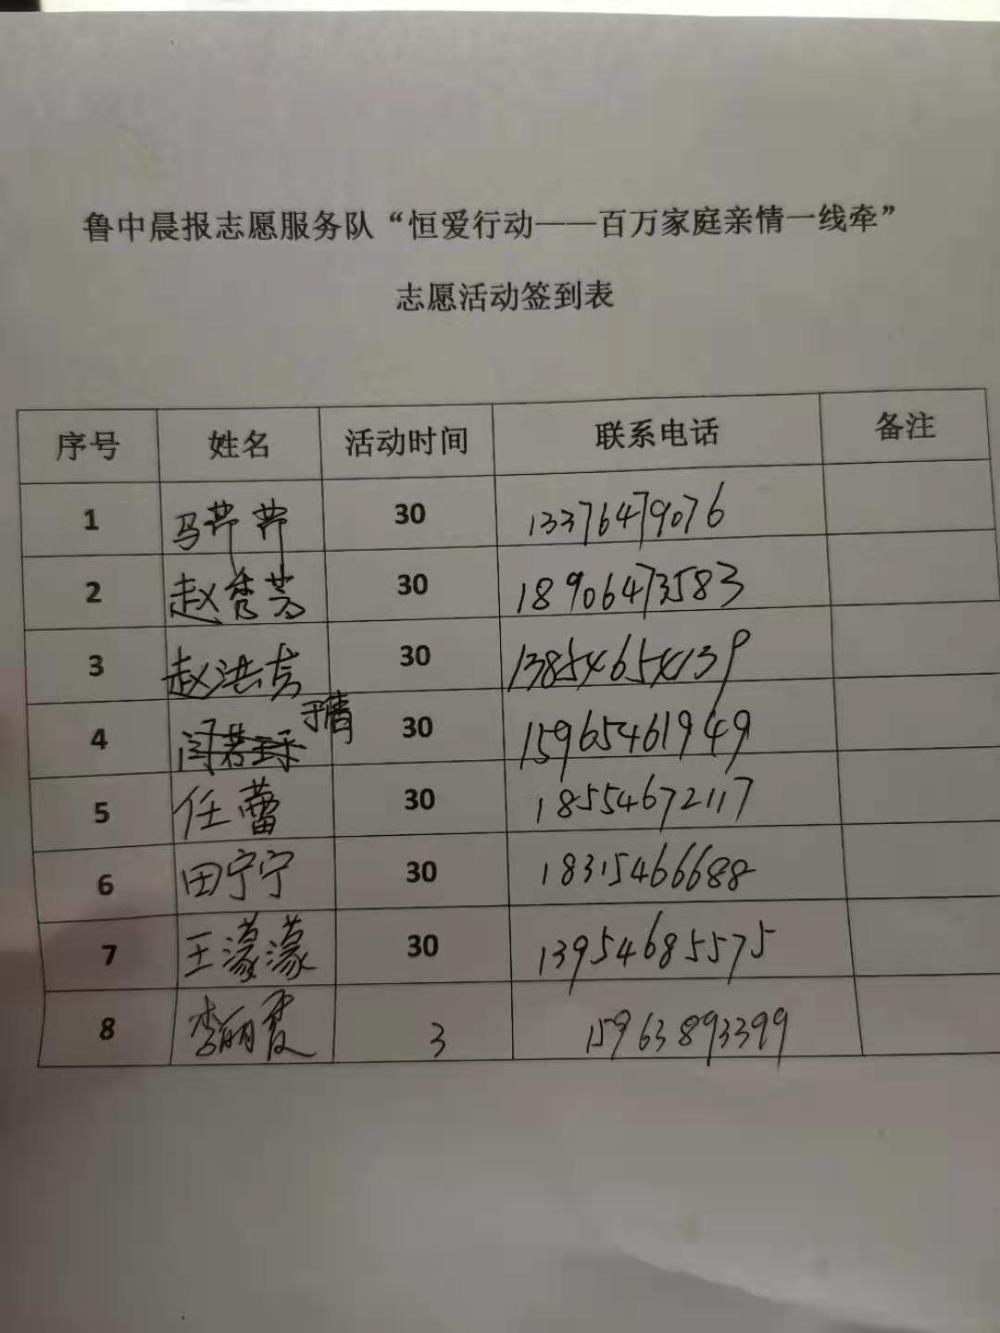 鲁中晨报志愿服务队“恒爱行动——百万家庭亲情一线牵”
志愿活动签到表
序号 姓名 活动时间 联系电话 备注
1 马芹芹 30 13376479076
2 赵秀芳 30 18906473583
3 赵洪吉 30 13854654139
4 于倩 30 15965461949
5 任蕾 30 18554672117
6 田宁宁 30 18315466688
7 王濛濛 30 13954685575
8 李丽霞 3 15963893399